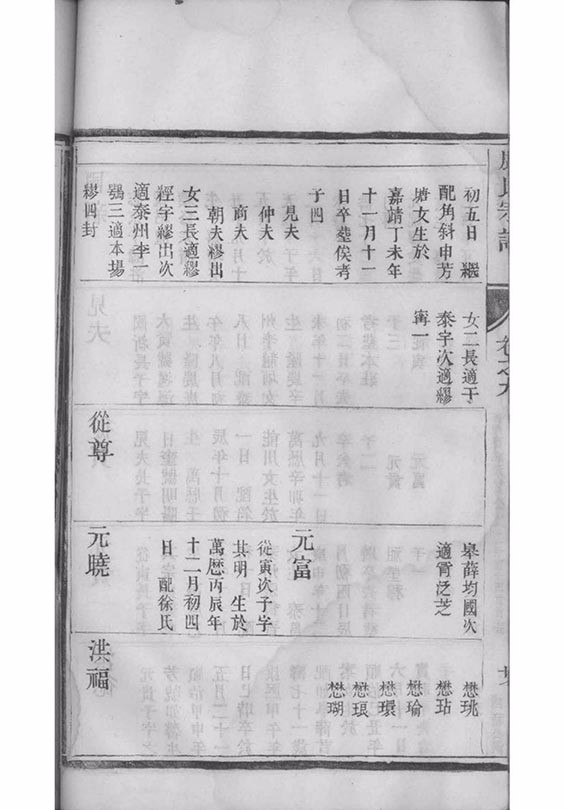 氏宗譜
卷之九
初五日 繼
配角斜申芳
塘女生於
嘉靖丁未年
十一月十一
日卒塟俟考
子四
見夫
仲夫
商夫
朝夫繆出
女三長適繆
經宇繆出次
適泰州李一
鶚三適本塲
繆四封
女二長適于
泰宇次適繆
寗一
從尊
皋薛均國次
適霄泛芝
元富
從寅次子字
其明 生於
萬曆丙辰年
十二月初四
日 配徐氏
元曉
懋珧
懋玷
懋瑜
懋環
懋琅
懋瑚
洪福